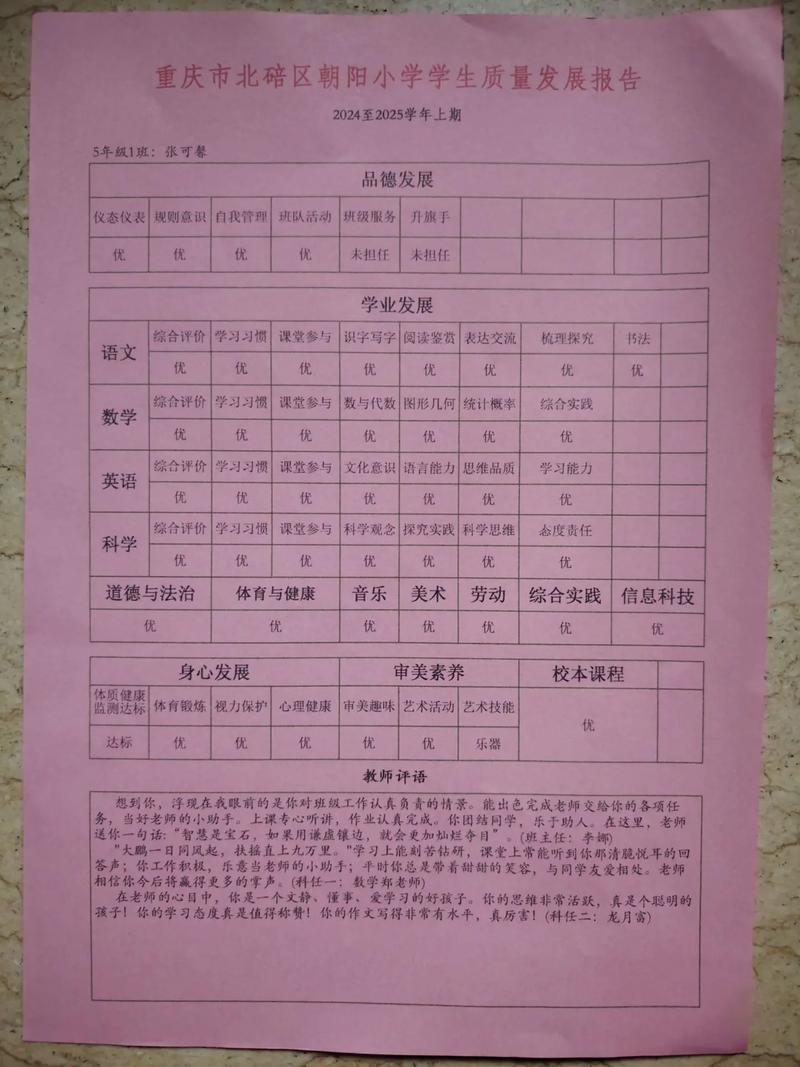 重庆市北碚区朝阳小学学生质量发展报告
2024至2025学年上期
5年级1班：张可馨
品德发展
仪态仪表 规则意识 自我管理 班队活动 班级服务 升旗手
优 优 优 优 未担任 未担任
学业发展
语文 综合评价 学习习惯 课堂参与 识字写字 阅读鉴赏 表达交流 梳理探究 书法
优 优 优 优 优 优 优 优
数学 综合评价 学习习惯 课堂参与 数与代数 图形几何 统计概率 综合实践
优 优 优 优 优 优 优
英语 综合评价 学习习惯 课堂参与 文化意识 语言能力 思维品质 学习能力
优 优 优 优 优 优 优
科学 综合评价 学习习惯 课堂参与 科学观念 探究实践 科学思维 态度责任
优 优 优 优 优 优 优
道德与法治 体育与健康 音乐 美术 劳动 综合实践 信息科技
优 优 优 优 优 优 优
身心发展 审美素养 校本课程
体质健康
监测达标 体育锻炼 视力保护 心理健康 审美趣味 艺术活动 艺术技能
优
达标 优 优 优 优 优 乐器
教师评语
想到你，浮现在我眼前的是你对班级工作认真负责的情景。能出色完成老师交给你的各项任
务，当好老师的小助手。上课专心听讲，作业认真完成。你团结同学，乐于助人。在这里，老师
送你一句话：“智慧是宝石，如果用谦虚镶边，就会更加灿烂夺目”。(班主任：李娜)
"大鹏一日同风起，扶摇直上九万里。"学习上能刻苦钻研，课堂上常能听到你那清脆悦耳的回
答声；你工作积极，乐意当老师的小助手；平时你总是带着甜甜的笑容，与同学友爱相处。老师
相信你今后将赢得更多的掌声。(科任一：数学郑老师)
在老师的心目中，你是一个文静、懂事、爱学习的好孩子。你的思维非常活跃，真是个聪明的
孩子！你的学习态度真是值得称赞！你的作文写得非常有水平，真厉害！(科任二：龙月富)